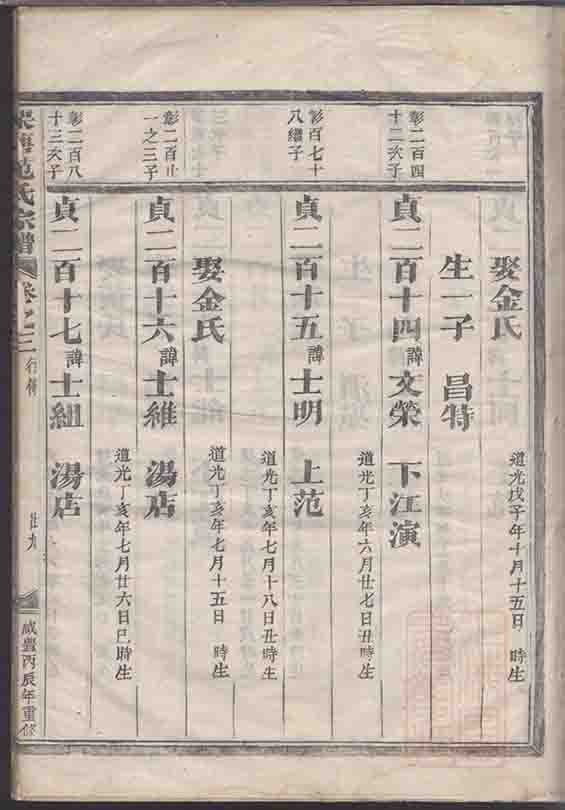 娶金氏 道光戊子年十月十五日 時生
生一子 昌特
彰二百四十二次子
貞二百十四諱文榮 下江演
道光丁亥年六月廿七日丑時生
彰百七十八繼子
貞二百十五諱士明 上范
道光丁亥年七月十八日丑時生
娶金氏 道光丁亥年七月十五日 時生
彰二百 一之三子
貞二百十六諱士維 湯店
道光丁亥年七月廿六日巳時生
彰二百八十三次子
貞二百十七諱士組 湯店
范氏宗譜 卷之三 行傳
咸豐丙辰年重修